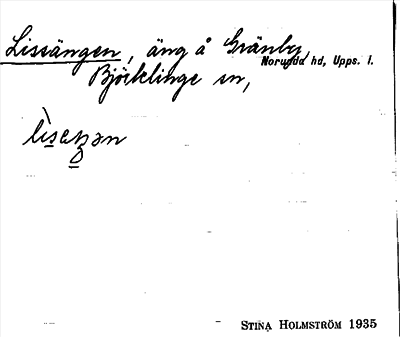 Lissängen, äng å Gränby,
Norunda hd, Upps. l.
Björklinge sn,
STINA HOLMSTRÖM 1935